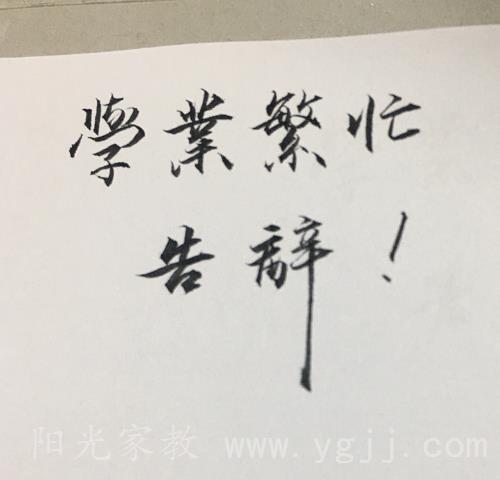 學業繁忙
告辭！
阳光家教 www.ygjj.com